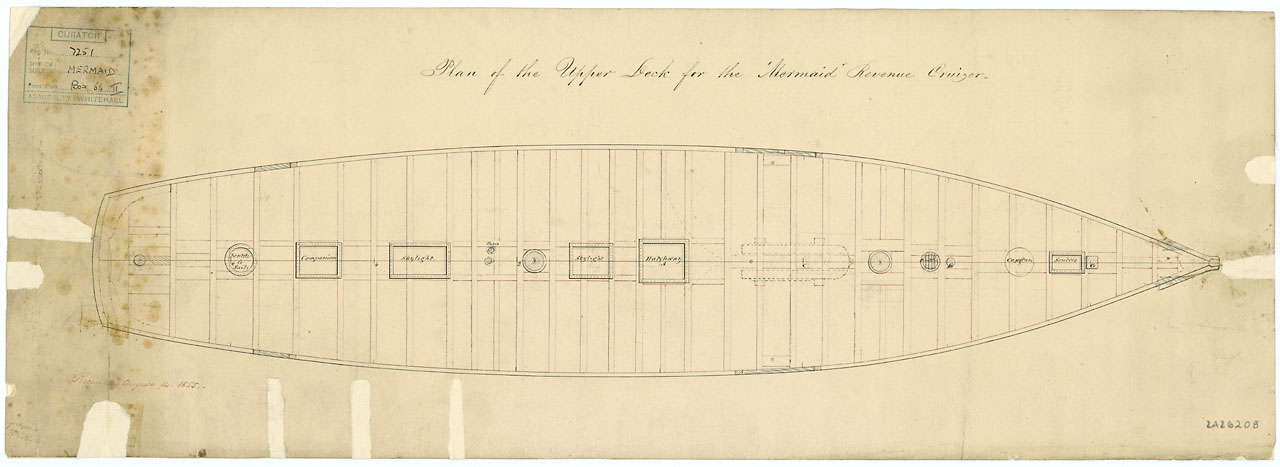 CURATOR
Reg. No. 7251
SHIP OR SUBJECT MERMAID
Box 64
ADMIRALTY WHITEHALL
Plan of the Upper Deck for the "Mermaid" Revenue Cruizer.
Scuttle to Sails
Companion
Skylight
Skylight
Hatchway
Capstan
Scuttle
August 14 1855.
ZAZ6208